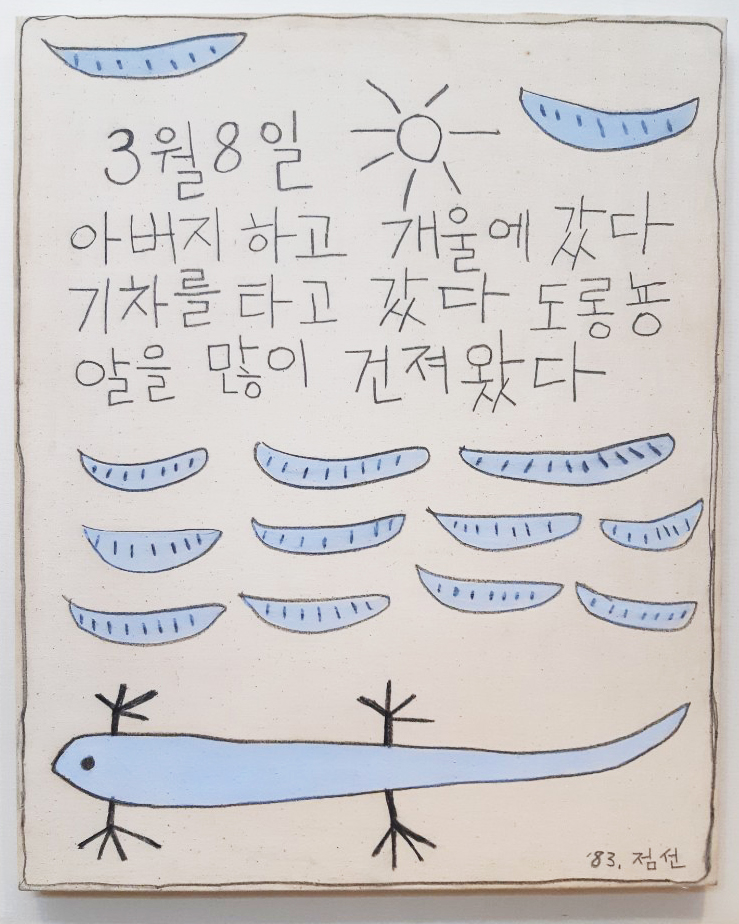 3월8일
아버지하고 개울에 갔다
기차를타고 갔다 도롱뇽
알을 많이 건져왔다
'83. 점선